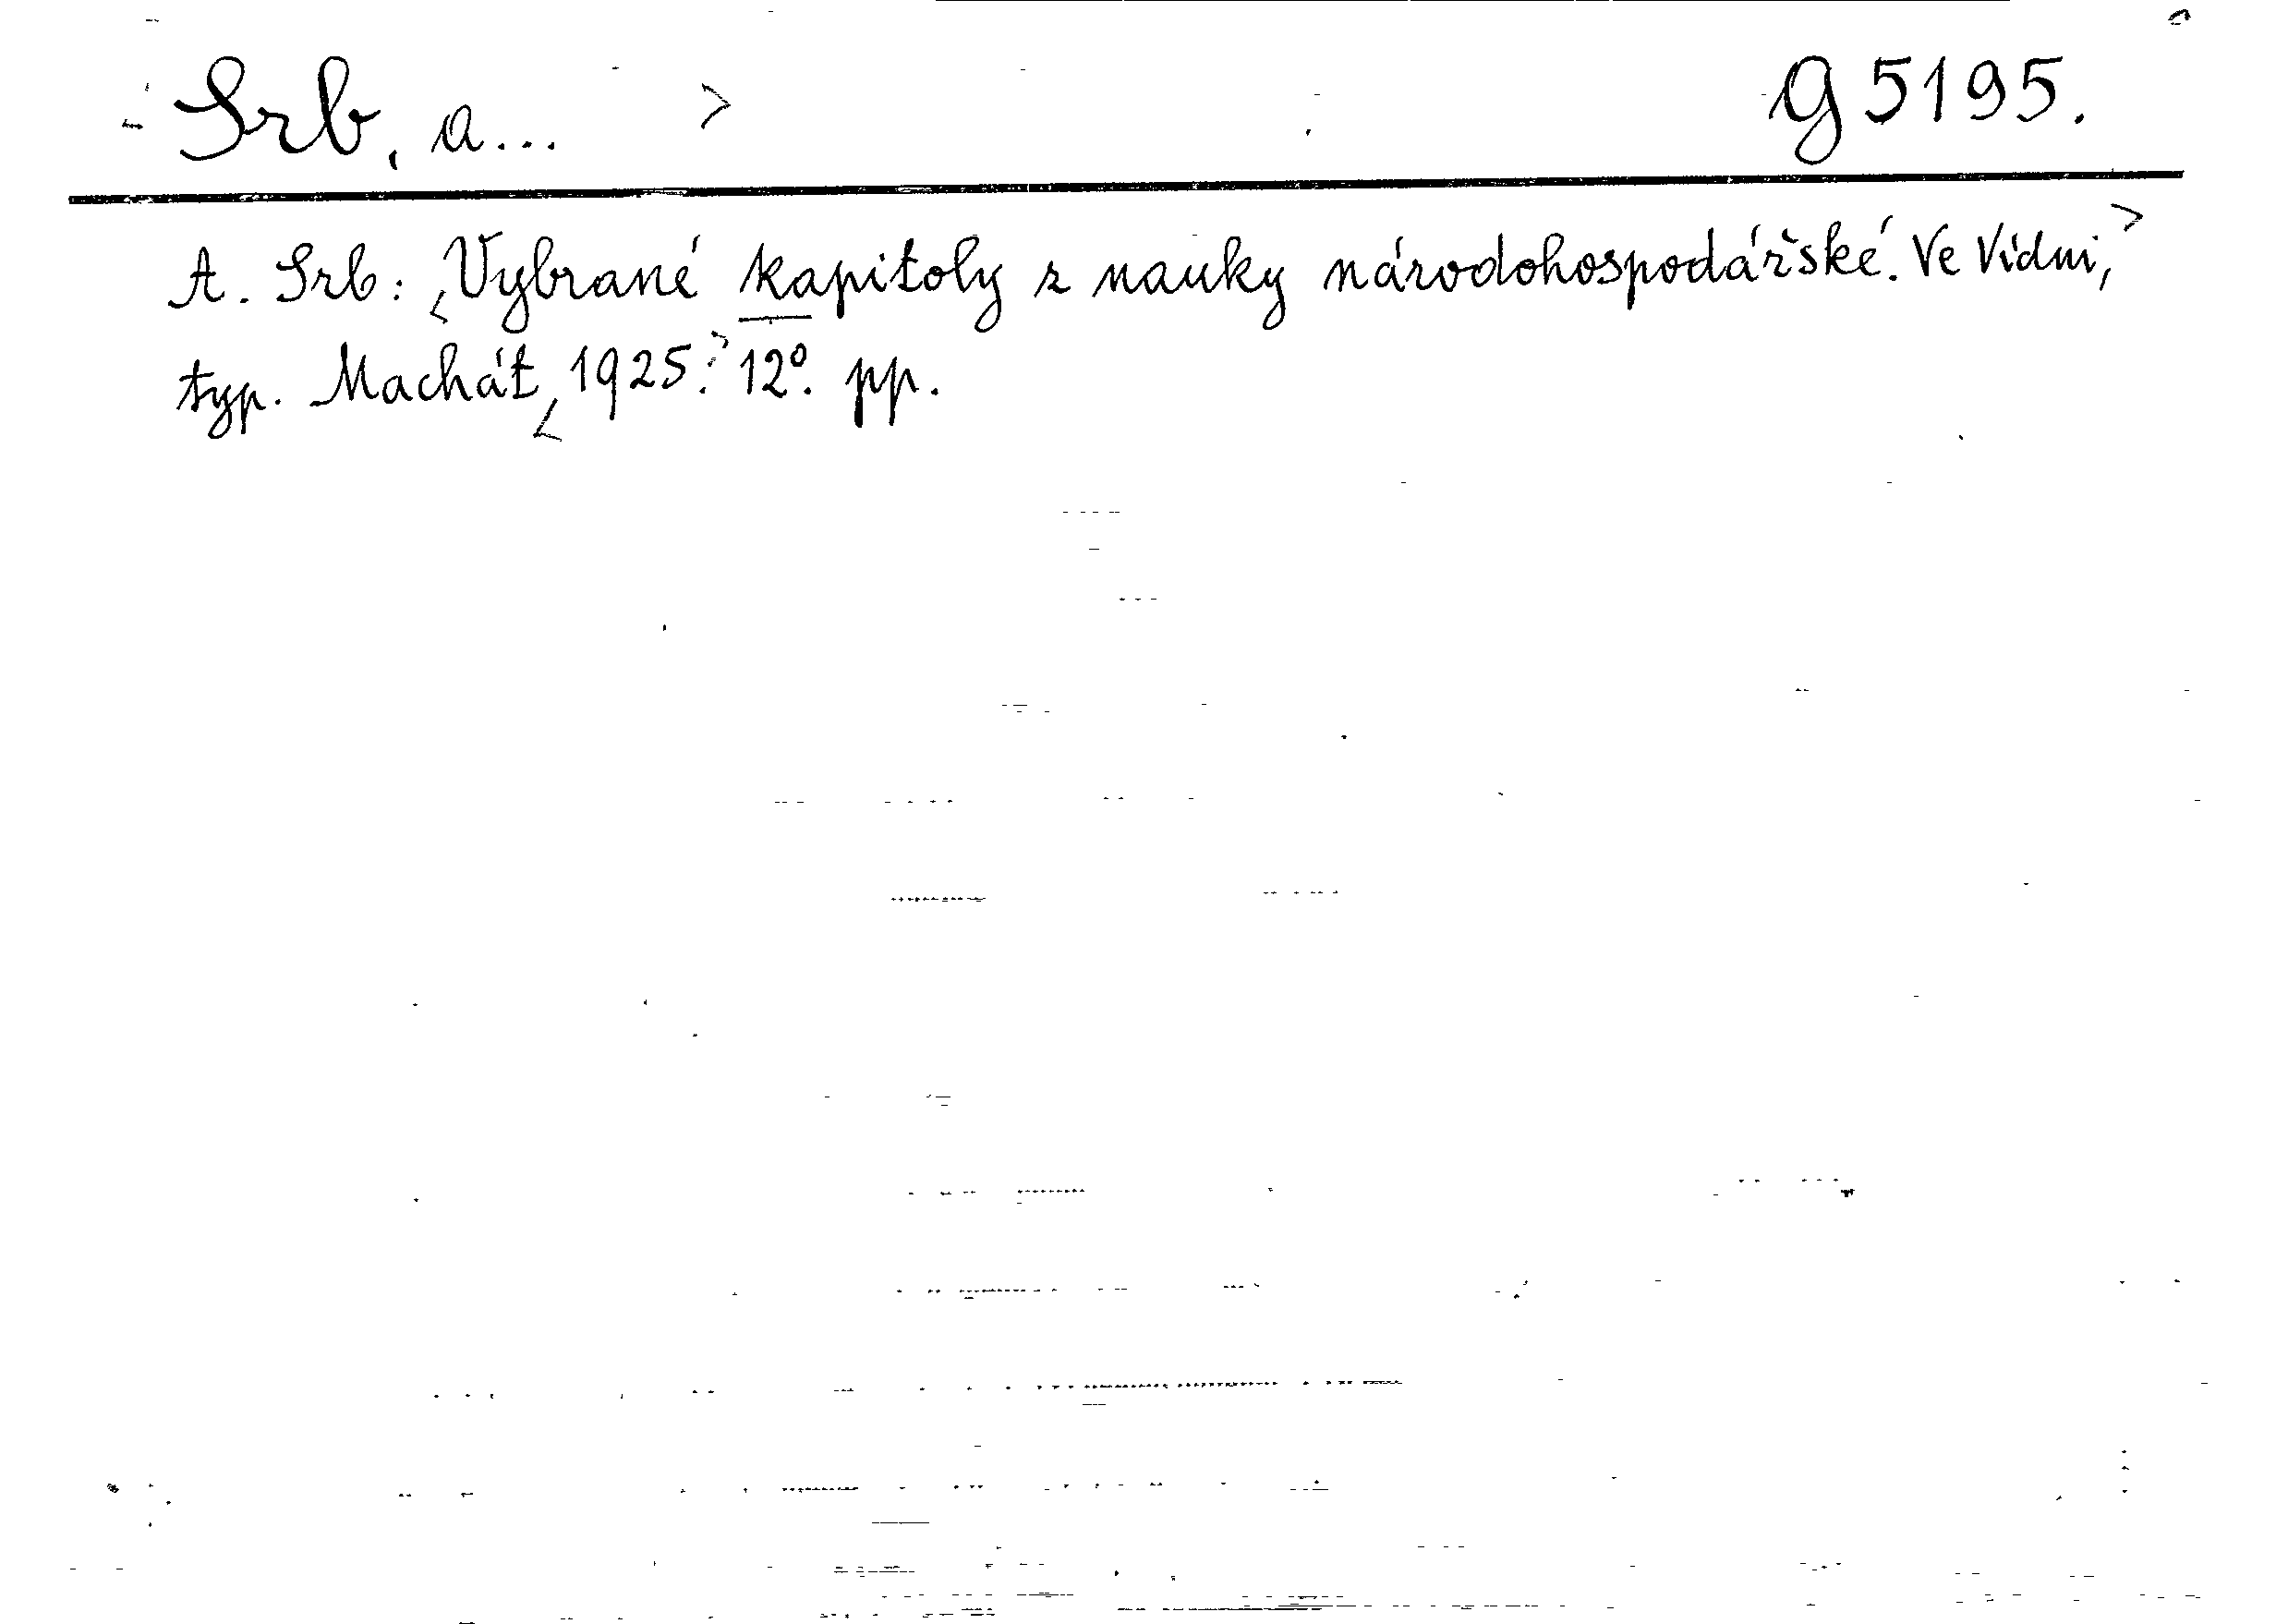 Srb, A... > g 5195.
A. Srb: <Vybrané kapitoly z nauky národohospodářské. Ve Vídni,>
typ. Machát, <1925.> 12°. pp.